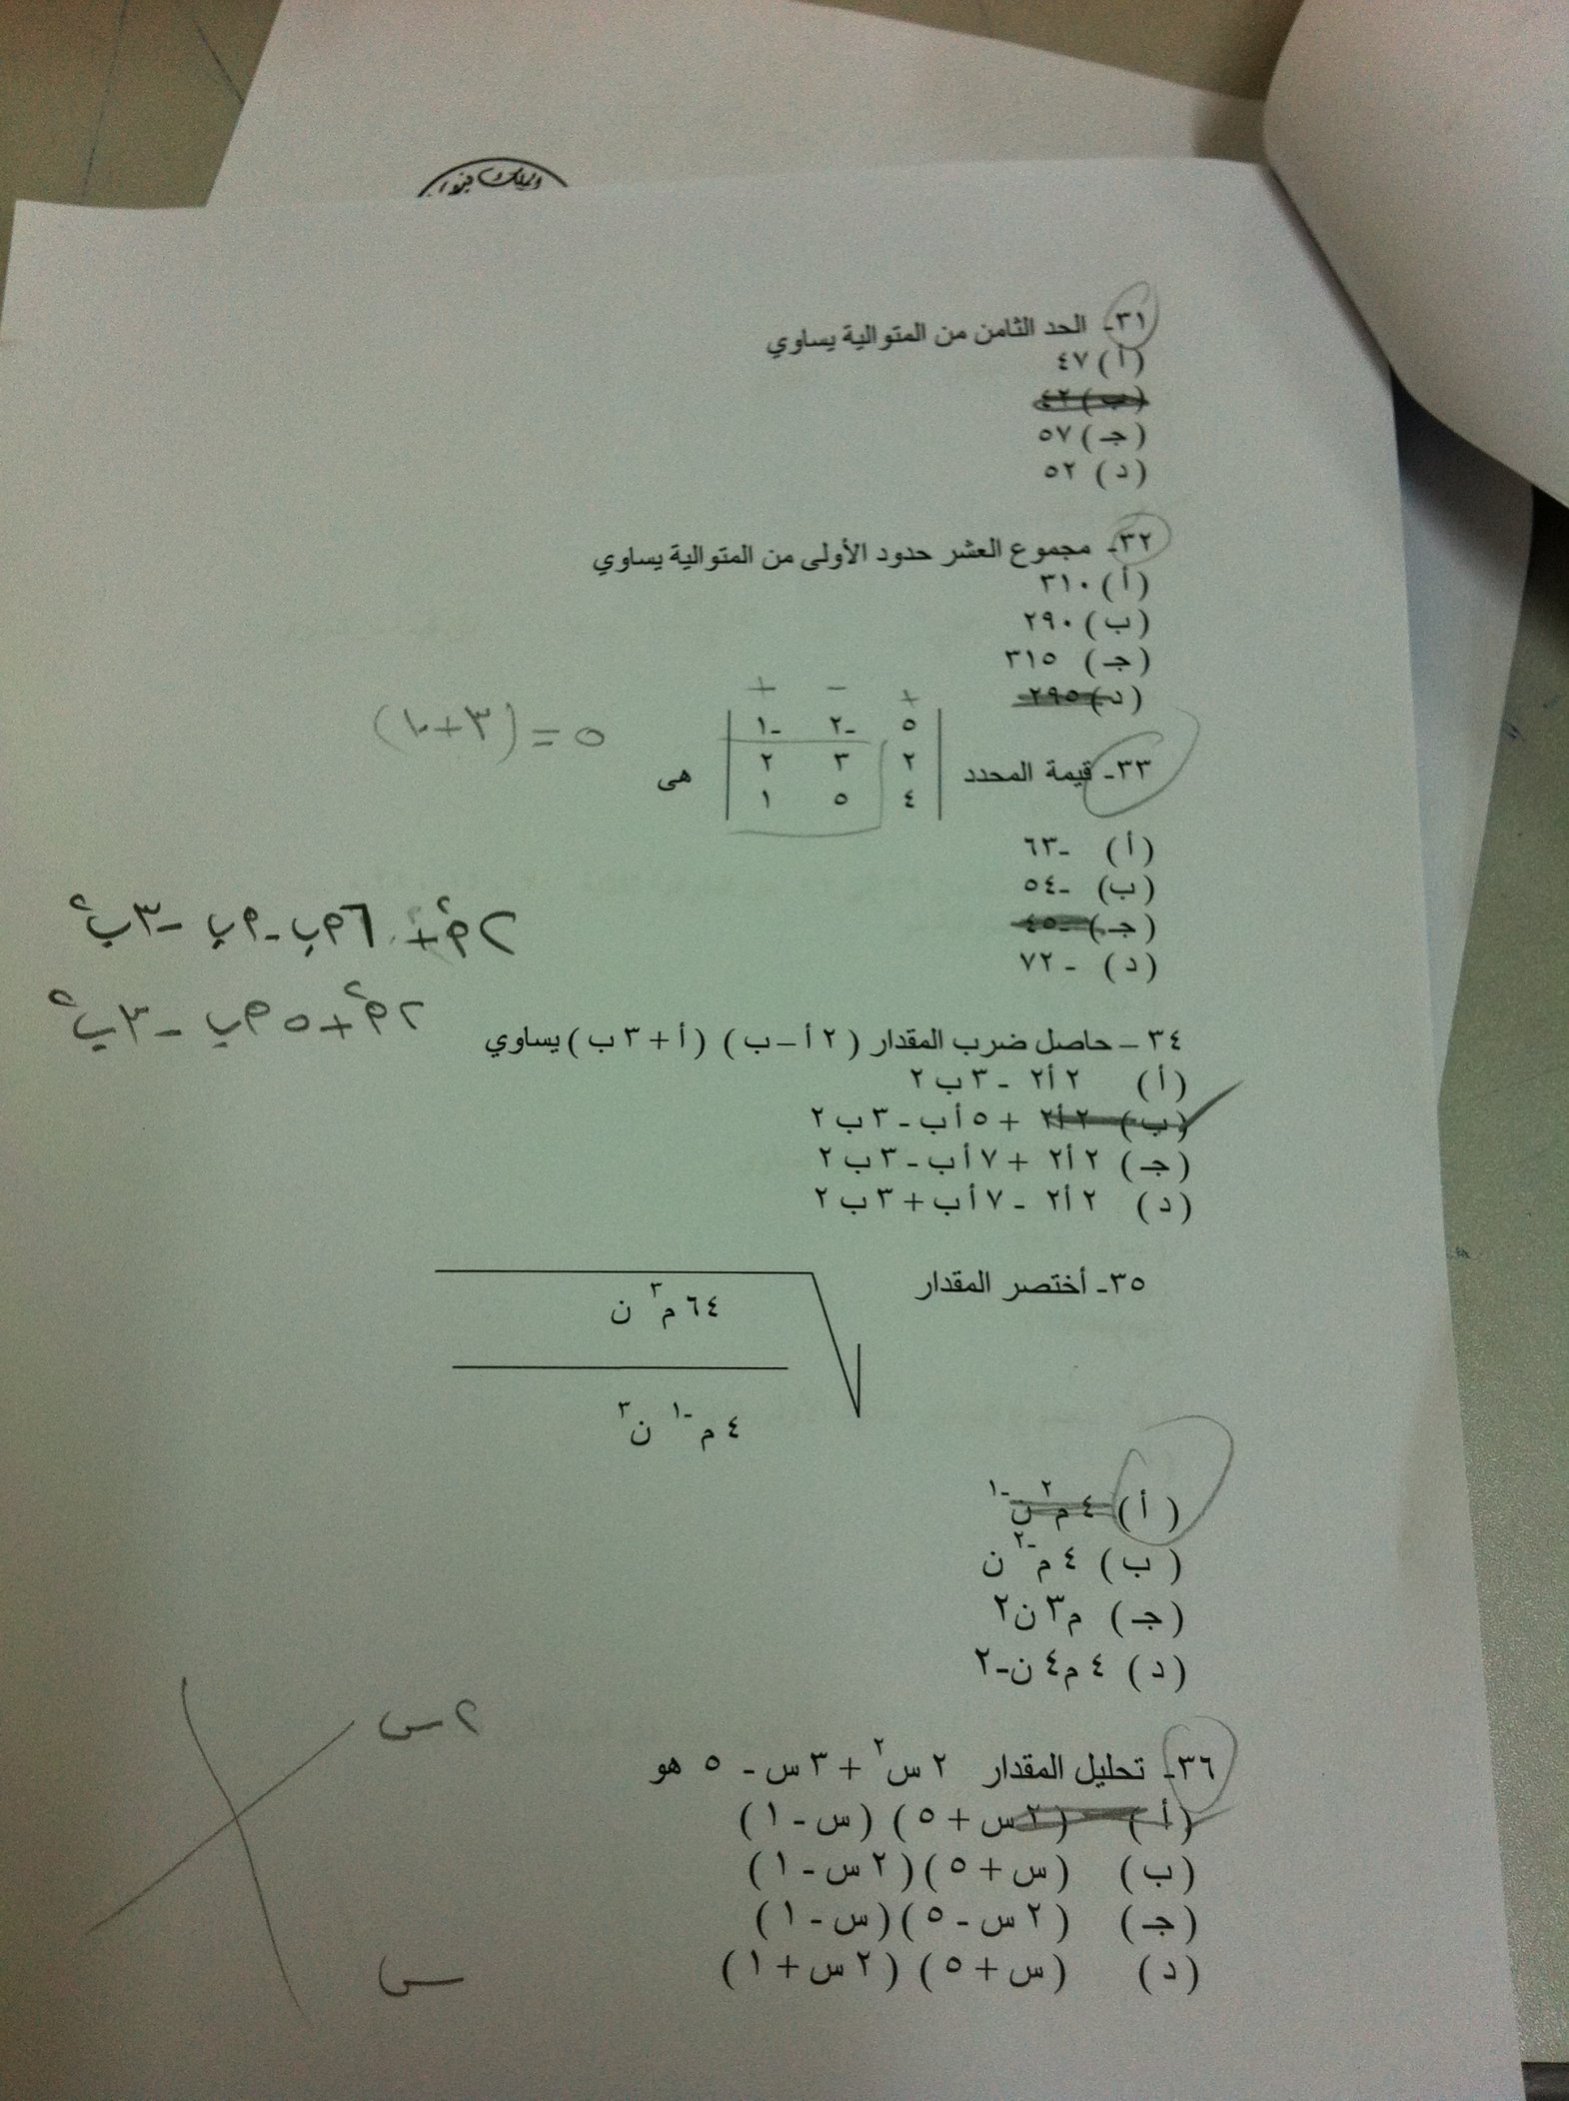 ٣١- الحد الثامن من المتوالية يساوي
(أ) ٤٧
(ب) ٤٢
(جـ) ٥٧
(د) ٥٢
٣٢- مجموع العشر حدود الأولى من المتوالية يساوي
(أ) ٣١٠
(ب) ٢٩٠
(جـ) ٣١٥
(د) ٢٩٥
+ - +
٥ -٢ -١
٣٣- قيمة المحدد ٢ ٣ ٢ هى
٤ ٥ ١
٥ = (٣+١٠)
(أ) -٦٣
(ب) -٥٤
(جـ) -٤٥
(د) -٧٢
٢م٢ + ٦م ب - م ب - ٣ب٢
٢م٢ + ٥ م ب - ٣ب٢
٣٤ – حاصل ضرب المقدار (٢أ – ب) (أ + ٣ب) يساوي
(أ) ٢أ٢ - ٣ب٢
(ب) ٢أ٢ + ٥أب - ٣ب٢
(جـ) ٢أ٢ + ٧أب - ٣ب٢
(د) ٢أ٢ - ٧أب + ٣ب٢
٣٥- أختصر المقدار
٦٤ م³ ن
٤ م⁻¹ ن³
(أ) ٤ م² ن⁻¹
(ب) ٤ م⁻² ن
(جـ) م٣ ن٢
(د) ٤ م٤ ن-٢
٢س
٣٦- تحليل المقدار ٢س² + ٣س - ٥ هو
(أ) (٢س + ٥) (س - ١)
(ب) (س + ٥) (٢س - ١)
(جـ) (٢س - ٥) (س - ١)
(د) (س + ٥) (٢س + ١)
س